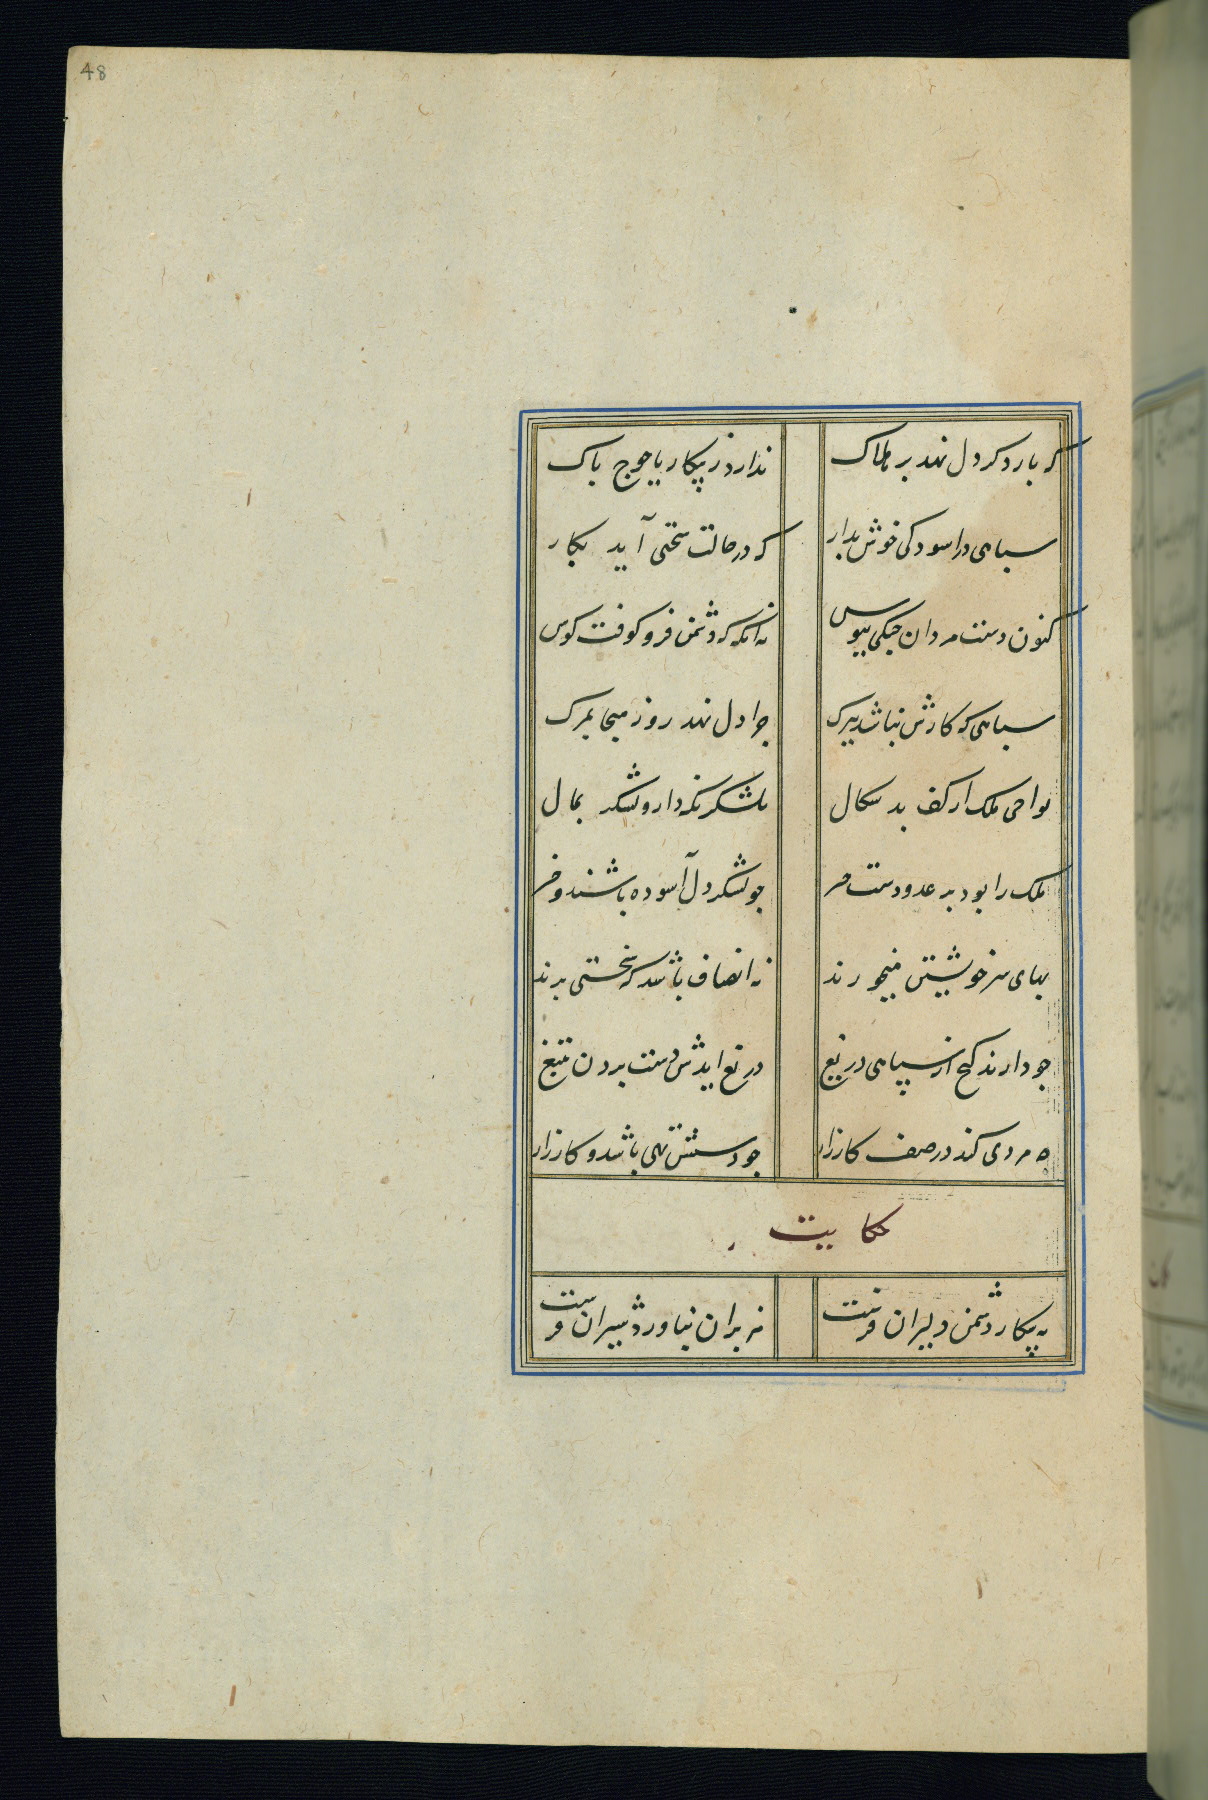 48
که بار دگر دل نهد بر هلاک
ندارد ز پیکار یاجوج باک
سباهی در اسودکی خوش بدار
که در حالت سختی آید بکار
کنون دست مردان جنکی ببوس
نه آنکه که دشمن فرو کوفت کوس
سباهی که کارش نباشد ببرک
جرا دل نهد روز هیجا بمرک
نواحی ملک از کف بد سکال
بلشکر نکه دار و لشکر بمال
ملک را بود بر عدو دست جر
جو لشکر دل آسوده باشند و
بهای سر خویشتن میخورند
نه انصاف باشد که سختی برند
جو دارند کنج از سپاهی دریغ
دریغ ایدش دست بردن بتیغ
جه مردی کند در صف کارزار
جو دستش تهی باشد و کارزار
حکایت
به پیکار دشمن دلیران فرست
هزبران بناورد شیران فرست